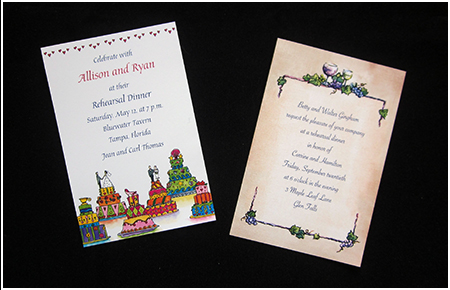 Celebrate with
Allison and Ryan
at their
Rehearsal Dinner
Saturday, May 12, at 7 p.m.
Bluewater Tavern
Tampa, Florida
Jean and Carl Thomas
Betty and Walter Gingham
request the pleasure of your company
at a rehearsal dinner
in honor of
Corrine and Hamilton
Friday, September twentieth
at six o'clock in the evening
3 Maple Leaf Lane
Glen Falls